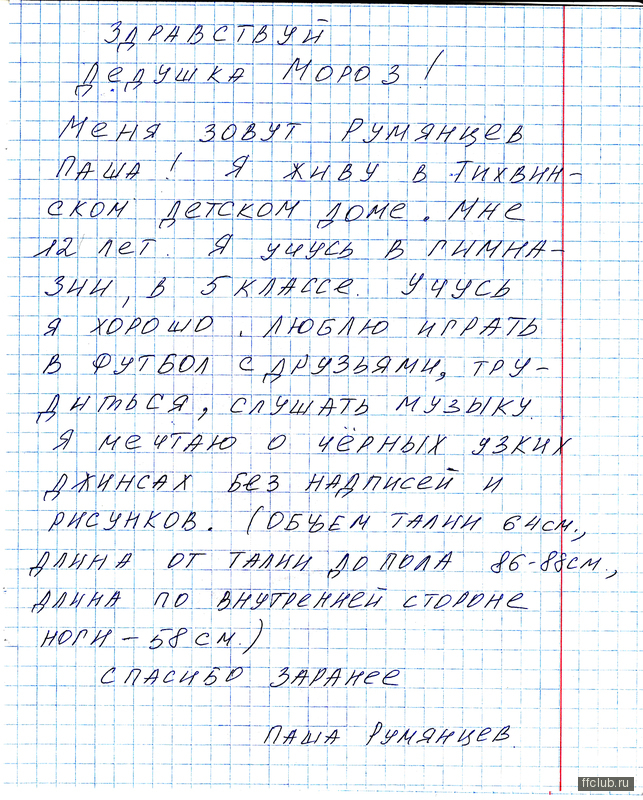 ЗДРАВСТВУЙ
ДЕДУШКА МОРОЗ!
МЕНЯ ЗОВУТ РУМЯНЦЕВ
ПАША! Я ЖИВУ В ТИХВИН-
СКОМ ДЕТСКОМ ДОМЕ. МНЕ
12 ЛЕТ. Я УЧУСЬ В ГИМНА-
ЗИИ, В 5 КЛАССЕ. УЧУСЬ
Я ХОРОШО. ЛЮБЛЮ ИГРАТЬ
В ФУТБОЛ С ДРУЗЬЯМИ, ТРУ-
ДИТЬСЯ, СЛУШАТЬ МУЗЫКУ.
Я МЕЧТАЮ О ЧЁРНЫХ УЗКИХ
ДЖИНСАХ БЕЗ НАДПИСЕЙ И
РИСУНКОВ. (ОБЪЕМ ТАЛИИ 64СМ.,
ДЛИНА ОТ ТАЛИИ ДО ПОЛА 86-88СМ.,
ДЛИНА ПО ВНУТРЕННЕЙ СТОРОНЕ
НОГИ - 58 СМ.)
СПАСИБО ЗАРАНЕЕ
ПАША РУМЯНЦЕВ
ffclub.ru